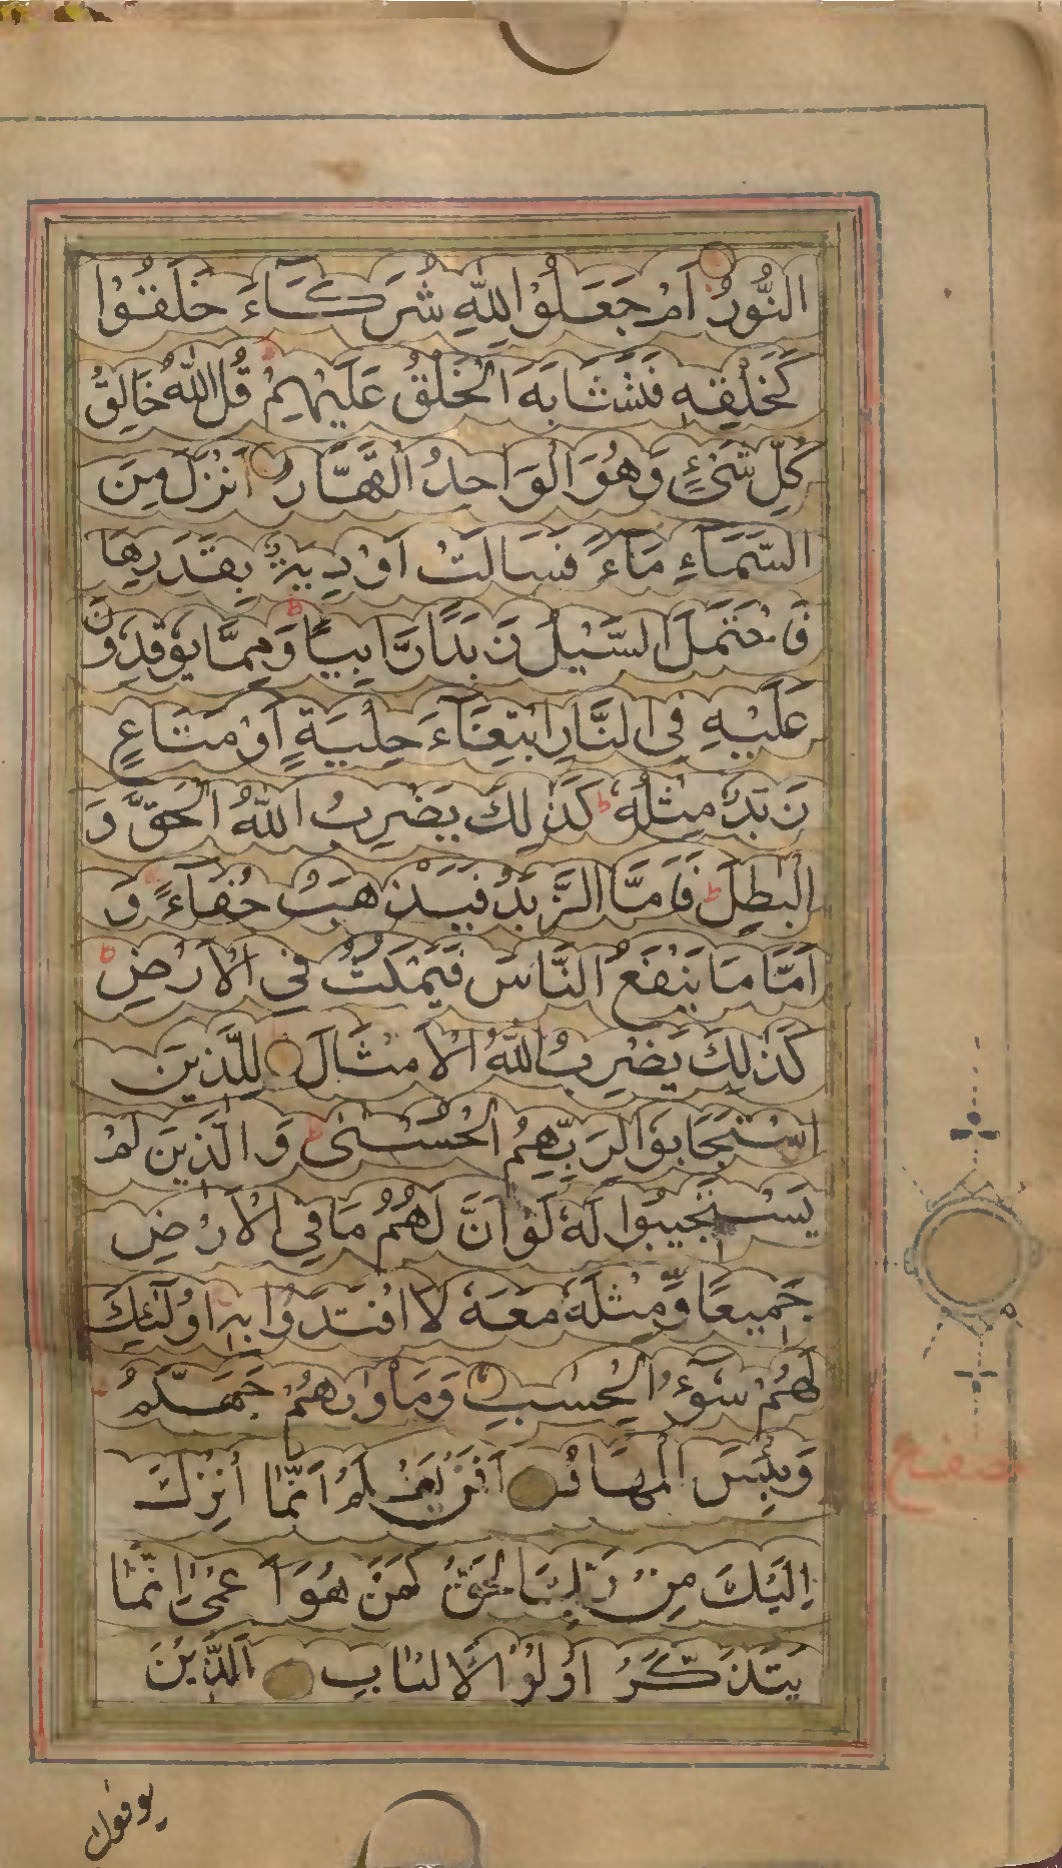 النُّورُ اَمْ جَعَلُوْا لِلّٰهِ شُرَكَآءَ خَلَقُوْا
كَخَلْقِهٖ فَتَشَابَهَ الْخَلْقُ عَلَيْهِمْ قُلِ اللّٰهُ خَالِقُ
كُلِّ شَیْءٍ وَهُوَ الْوَاحِدُ الْقَهَّارُ اَنْزَلَ مِنَ
السَّمَآءِ مَآءً فَسَالَتْ اَوْدِيَةٌ بِقَدَرِهَا
فَاحْتَمَلَ السَّيْلُ زَبَدًا رَّابِيًا ط وَمِمَّا يُوْقِدُوْنَ
عَلَيْهِ فِی النَّارِ ابْتِغَآءَ حِلْيَةٍ اَوْ مَتَاعٍ
زَبَدٌ مِثْلُهٗ ط كَذٰلِكَ يَضْرِبُ اللّٰهُ الْحَقَّ وَ
الْبٰطِلَ ط فَاَمَّا الزَّبَدُ فَيَذْهَبُ جُفَآءً وَ
اَمَّا مَا يَنْفَعُ النَّاسَ فَيَمْكُثُ فِی الْاَرْضِ ط
كَذٰلِكَ يَضْرِبُ اللّٰهُ الْاَمْثَالَ لِلَّذِيْنَ
اسْتَجَابُوْا لِرَبِّهِمُ الْحُسْنٰى ط وَالَّذِيْنَ لَمْ
يَسْتَجِيْبُوْا لَهٗ لَوْ اَنَّ لَهُمْ مَا فِی الْاَرْضِ
جَمِيْعًا وَّمِثْلَهٗ مَعَهٗ لَا افْتَدَوْا بِهٖ اُولٰٓئِكَ
لَهُمْ سُوْٓءُ الْحِسَابِ وَمَاْوٰىهُمْ جَهَنَّمُ
وَبِئْسَ الْمِهَادُ اَفَمَنْ يَعْلَمُ اَنَّمَا اُنْزِلَ
اِلَيْكَ مِنْ رَبِّكَ الْحَقُّ كَمَنْ هُوَ اَعْمٰى اِنَّمَا
يَتَذَكَّرُ اُولُوا الْاَلْبَابِ اَلَّذِيْنَ
يوفون
نصف ع